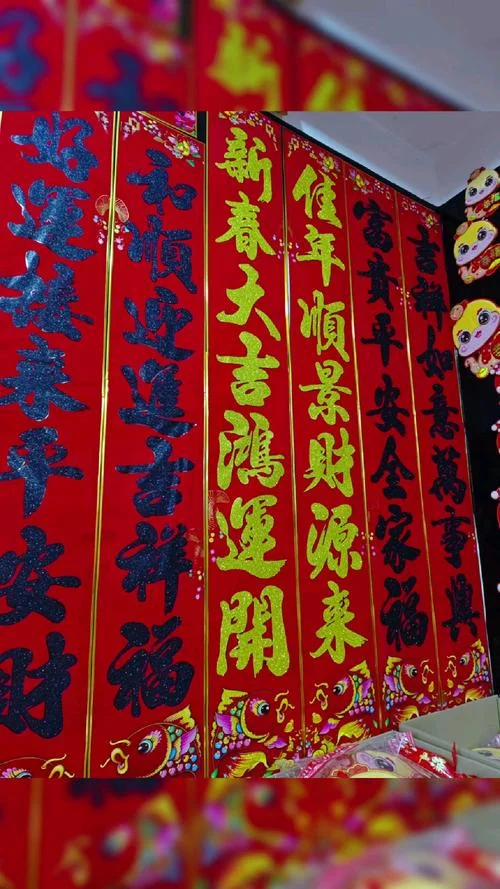 吉祥如意萬事興
富貴平安全家福
佳年順景財源来
新春大吉鴻運開
和順迎進吉祥福
好運接来平安財